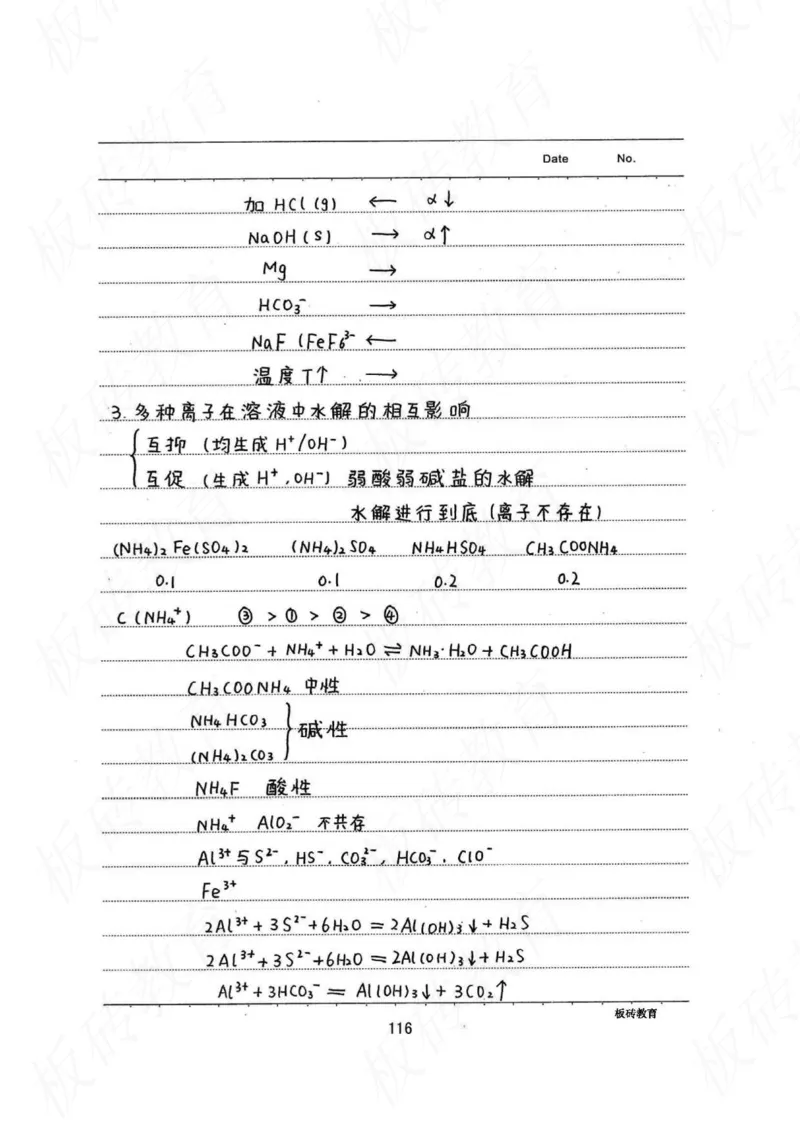 Date No.
加 HCl (g) ← α↓
NaOH (s) → α↑
Mg →
HCO₃⁻ →
NaF (FeF₆³⁻ ←
温度 T↑ →
3. 多种离子在溶液中水解的相互影响
互抑 (均生成 H⁺/OH⁻)
互促 (生成 H⁺, OH⁻) 弱酸弱碱盐的水解
水解进行到底 (离子不存在)
(NH₄)₂Fe(SO₄)₂ (NH₄)₂SO₄ NH₄HSO₄ CH₃COONH₄
0.1 0.1 0.2 0.2
C (NH₄⁺) ③ > ① > ② > ④
CH₃COO⁻ + NH₄⁺ + H₂O ⇌ NH₃·H₂O + CH₃COOH
CH₃COONH₄ 中性
NH₄HCO₃
碱性
(NH₄)₂CO₃
NH₄F 酸性
NH₄⁺ AlO₂⁻ 不共存
Al³⁺与S²⁻, HS⁻, CO₃²⁻, HCO₃⁻, ClO⁻
Fe³⁺
2Al³⁺ + 3S²⁻ + 6H₂O = 2Al(OH)₃↓ + H₂S
2Al³⁺ + 3S²⁻ + 6H₂O = 2Al(OH)₃↓ + H₂S
Al³⁺ + 3HCO₃⁻ = Al(OH)₃↓ + 3CO₂↑
板砖教育
116